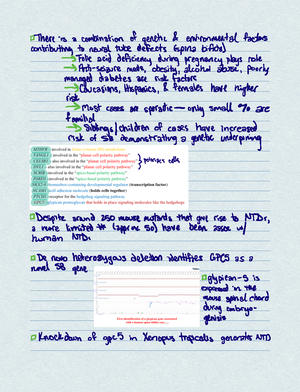 There is a combination of genetic & environmental factors
contributing to neural tube defects (spina bifida)
→ Folic acid deficiency during pregnancy plays role
→ Anti-seizure meds, obesity, alcohol abuse, poorly
managed diabetes are risk factors
→ Caucasians, Hispanics, & females have higher
risk
→ Most cases are sporatic — only small % are
familial
→ Siblings/children of cases have increased
risk of SB demonstrating a genetic underpinning
involved in
involved in the "planar cell polarity pathway"
also involved in the "planar cell polarity pathway"
also involved in the "planar cell polarity pathway"
} polarizes cells
involved in the "apico-basal polarity pathway"
involved in the "apico-basal polarity pathway"
developmental regulator (transcription factor)
adhesion molecule (holds cells together)
receptor for the hedgehog signaling pathway
that holds in place signaling molecules like the hedgehogs
Despite around 250 mouse mutants that give rise to NTDs,
a more limited # (approx 50) have been assoc w/
human NTDs.
De novo heterozygous deletion identifies GPC5 as a
novel SB gene
glypican-5 is
expressed in the
mouse spinal chord
during embryo-
genisis
First identification of a glypican gene associated
with a human spina bifida case
Knockdown of gpc5 in Xenopus tropicalis generates NTD